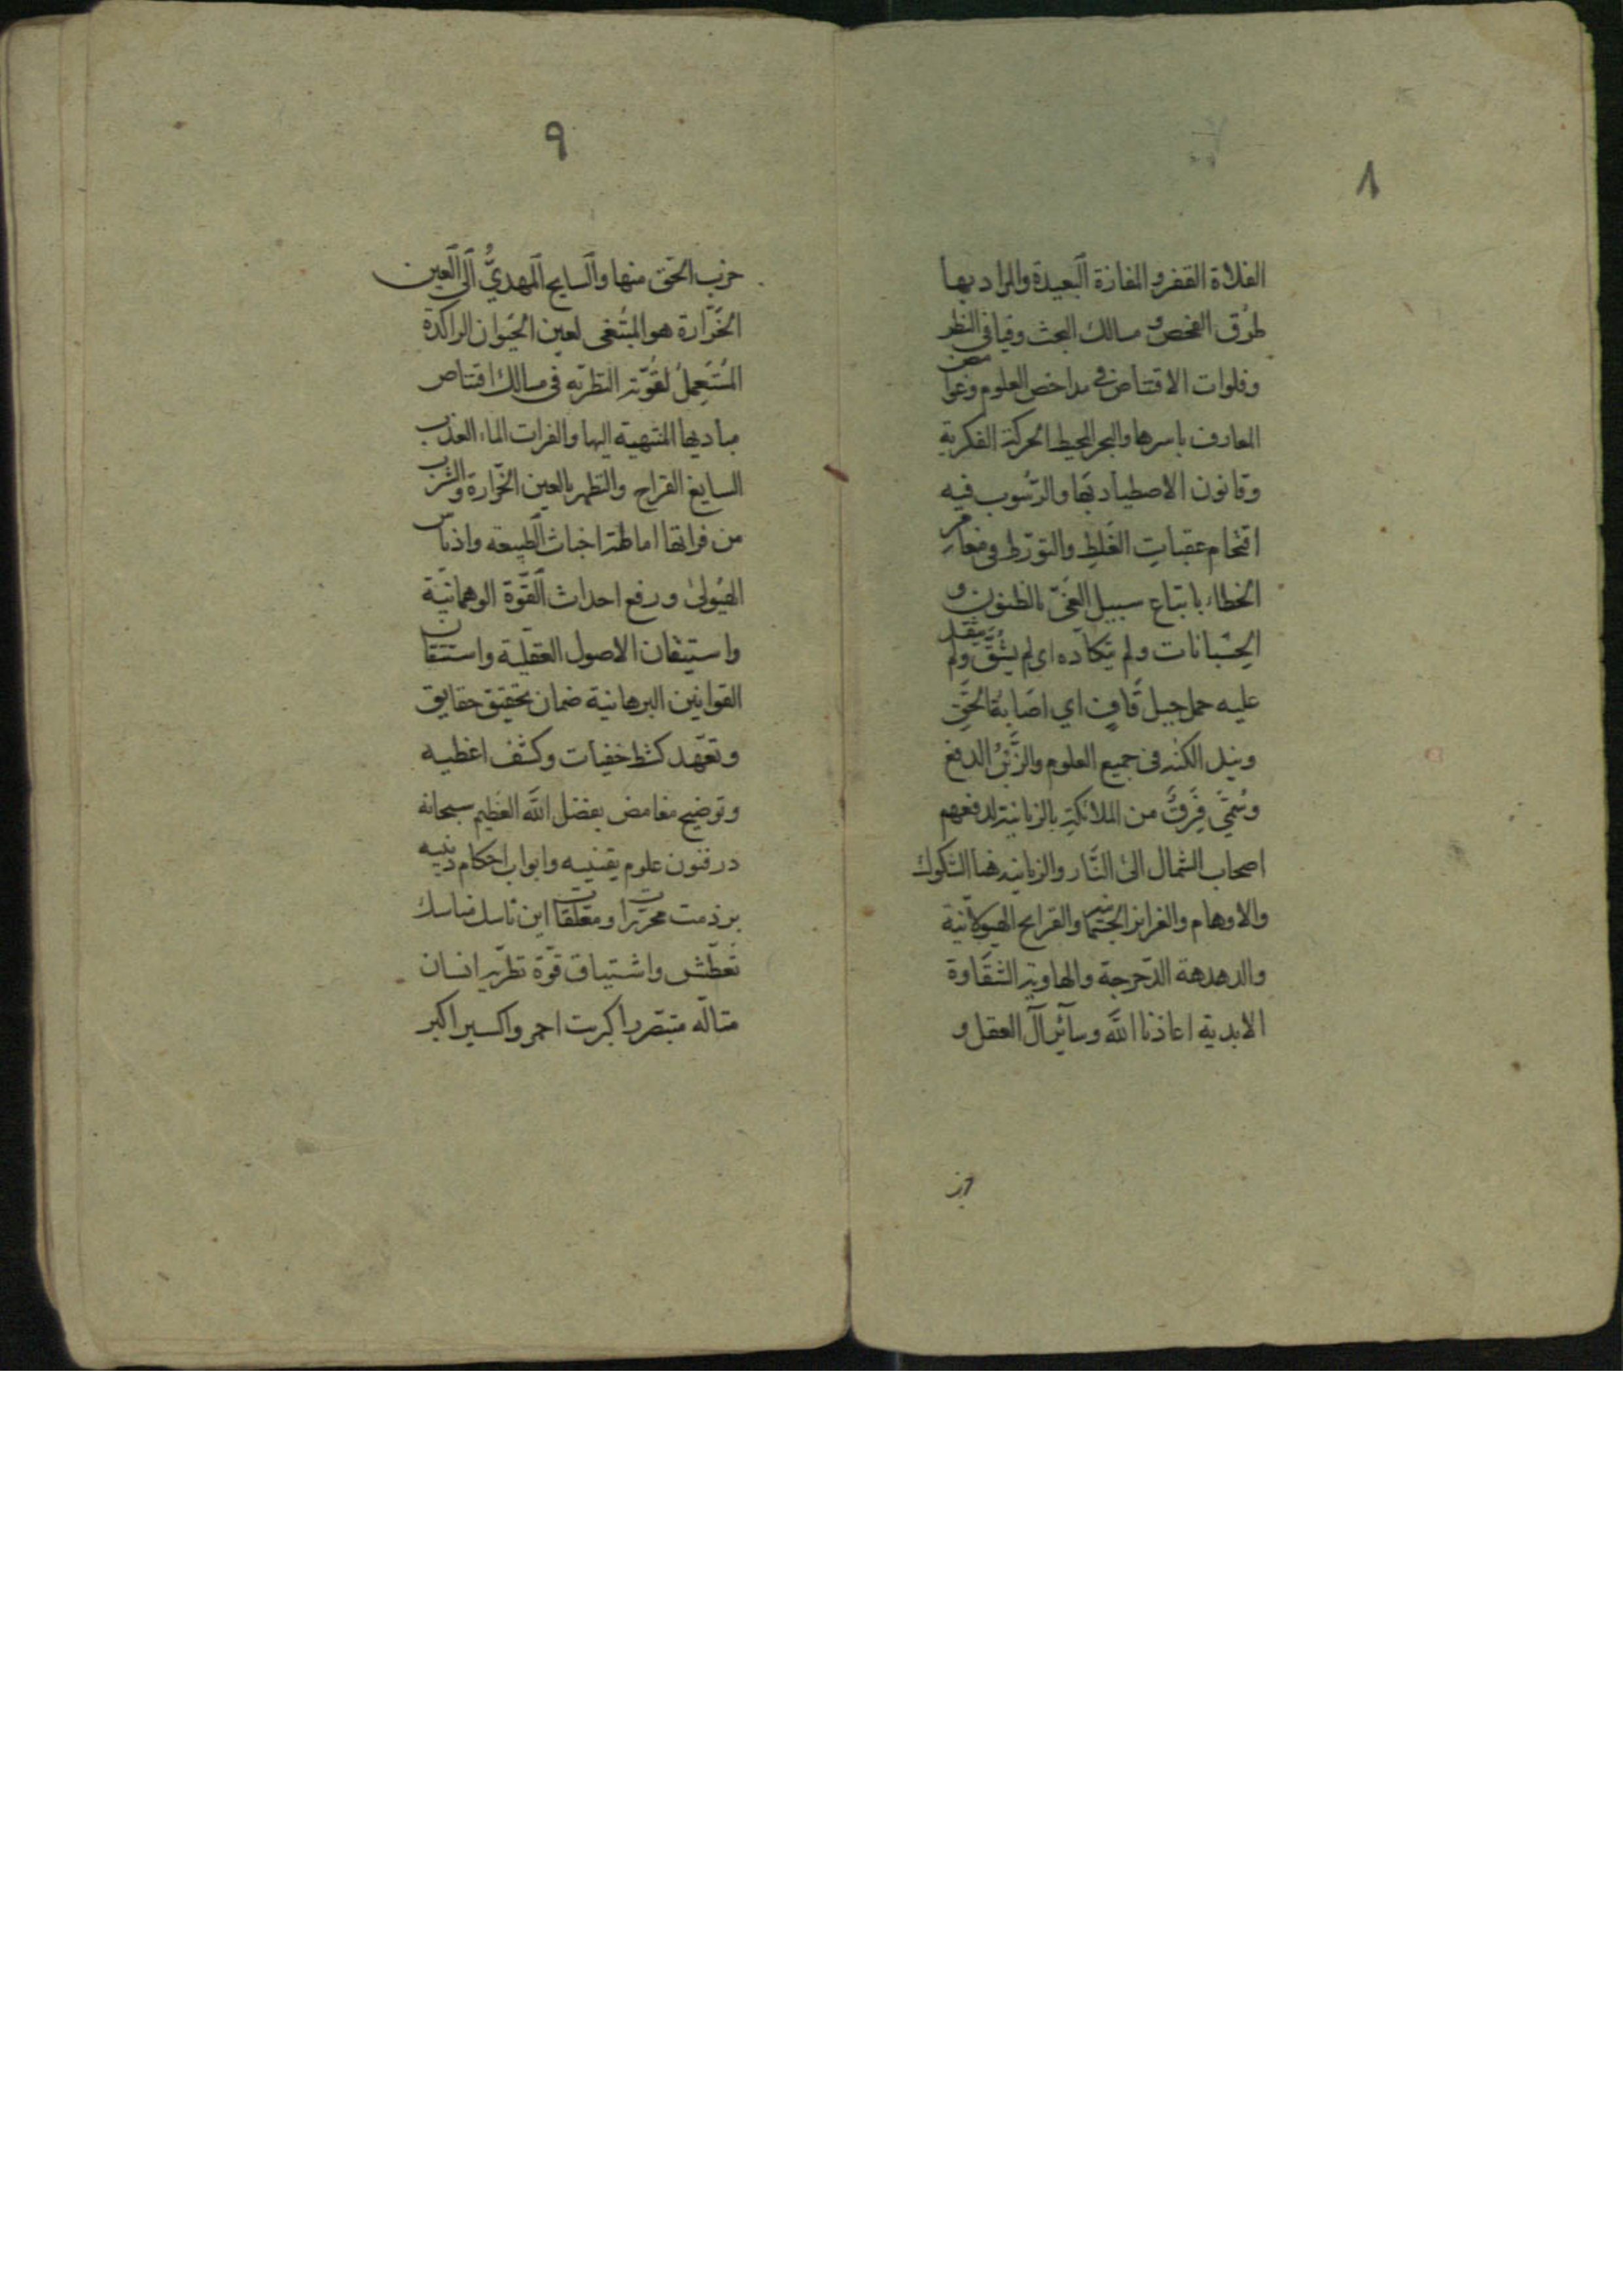 ٨
الفلاة القفر و المفازة البعيدة والمراد بها
طرق الفحص و مسالك البحث وفيافي النظر
وفلوات الاقتناص في مداحض العلوم وغوامض
المعارف باسرها والبحر المحيط الحركة الفكرية
وقانون الاصطياد بها والرسوب فيه
اقتحام عقبات الغلط والتورط في
الخطاء باتباع سبيل الغي بالظنون و
الحسبانات ولم يتكاده اي لم يشق ولم يثقل
عليه حمل جبل قاف اي اصابة الحق
ونيل الكنه في جميع العلوم والزبن الدفع
وسمي فرق من الملائكة بالزبانية لدفعهم
اصحاب الشمال الى النار والزبانية هنا الشكوك
والاوهام والغرايز الجسمانية والقرايح الهيولانية
والدهدهة الدحرجة والهاوية الشقاوة
الابدية اعاذنا الله وسائر آل العقل و
٩
حزب الحق منها والسايح المهدي الى العين
الخرارة هو المبتغى لعين الحيوان الراكدة
المستعمل لقوته النظرية في مسالك اقتناص
مباديها المنتهية اليها والفرات الماء العذب
السايغ القراح والتطهر بالعين الخرارة والشرب
من فراتها اماطة اخباث الطبيعة وادناس
الهيولى ورفع احداث القوة الوهمانية
واستيقان الاصول العقلية واستتقان
القوانين البرهانية ضمان تحقيق حقايق
وتعهد كشط خفيات وكشف اغطيه
وتوضيح مغامض بفضل الله العظيم سبحانه
در فنون علوم يقينيه وابواب احكام دينيه
بر ذمت محررات ومعلقات اين ناسك مناسك
تعطش واشتياق قوة نظريه انسان
متاله متبصر را كبريت احمر واكسير اكبر